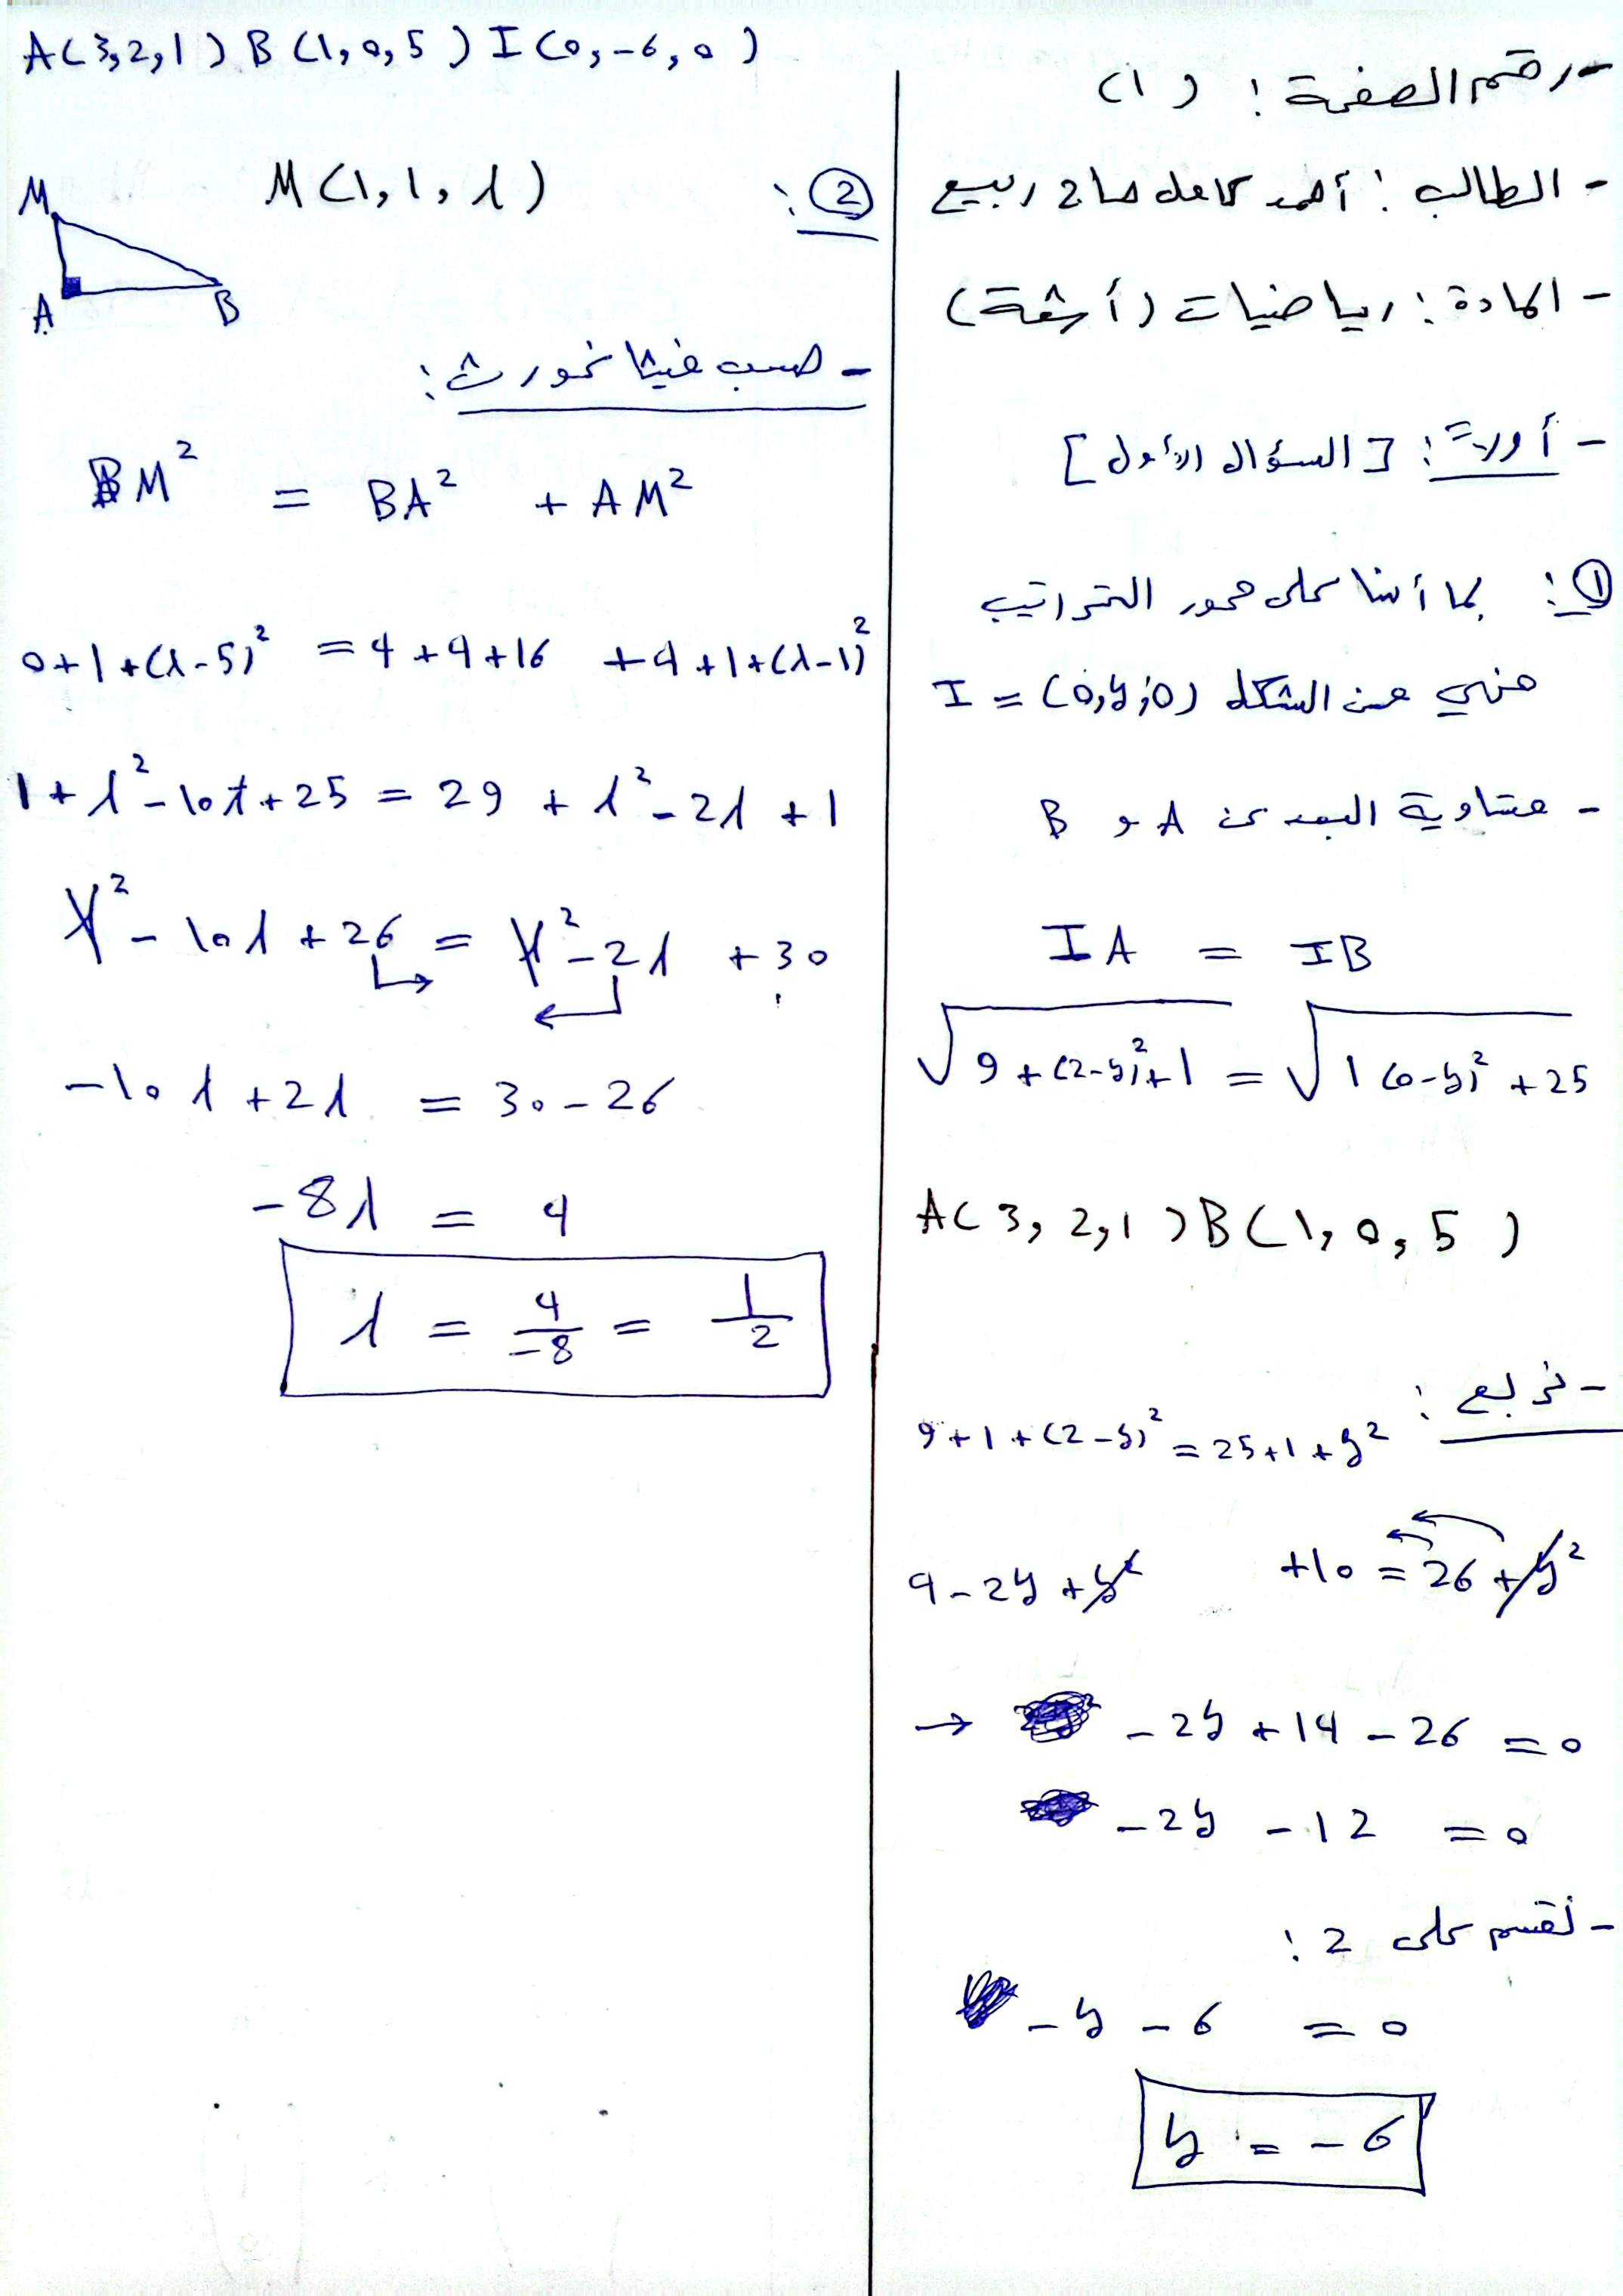 - رقم الصفحة : (1)
- الطالب : أحمد كامل صالح ربيع
- المادة : رياضيات (أتمتة)
- أولاً : [السؤال الأول]
① : بما أننا على محور التراتيب
فهي من الشكل I = (0, y, 0)
- متساوية البعد عن A و B
IA = IB
√9 + (2-y)² + 1 = √1 (0-y)² + 25
A(3, 2, 1) B(1, 0, 5)
- نربع :
9+1+(2-y)² = 25+1+y²
4 - 2y + y² +10 = 26 + y²
→ - 2y + 14 - 26 = 0
- 2y - 12 = 0
- نقسم على 2 :
- y - 6 = 0
y = - 6
A(3,2,1) B(1,0,5) I(0,-6,0)
② : M(1,1,λ)
M
A B
- حسب فيثاغورث :
BM² = BA² + AM²
0+1+(λ-5)² = 4+4+16 +4+1+(λ-1)²
1+λ²-10λ+25 = 29 + λ²-2λ+1
λ² - 10λ + 26 = λ² - 2λ + 30
-10λ + 2λ = 30 - 26
-8λ = 4
λ = 4/-8 = 1/2